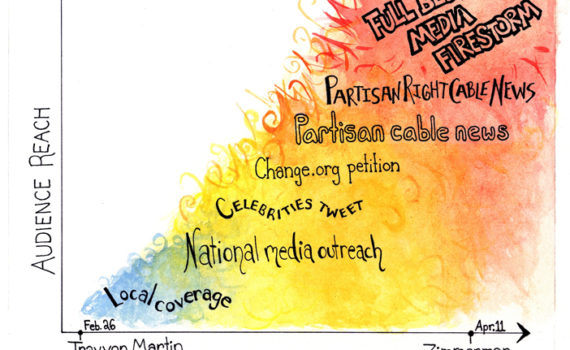 FULL
MEDIA
FIRESTORM
PARTISAN RIGHT CABLE NEWS
Partisan cable news
Change.org petition
CELEBRITIES TWEET
National media outreach
Local coverage
AUDIENCE REACH
Feb. 26
Apr. 11
Trayvon Martin
Zimmerman